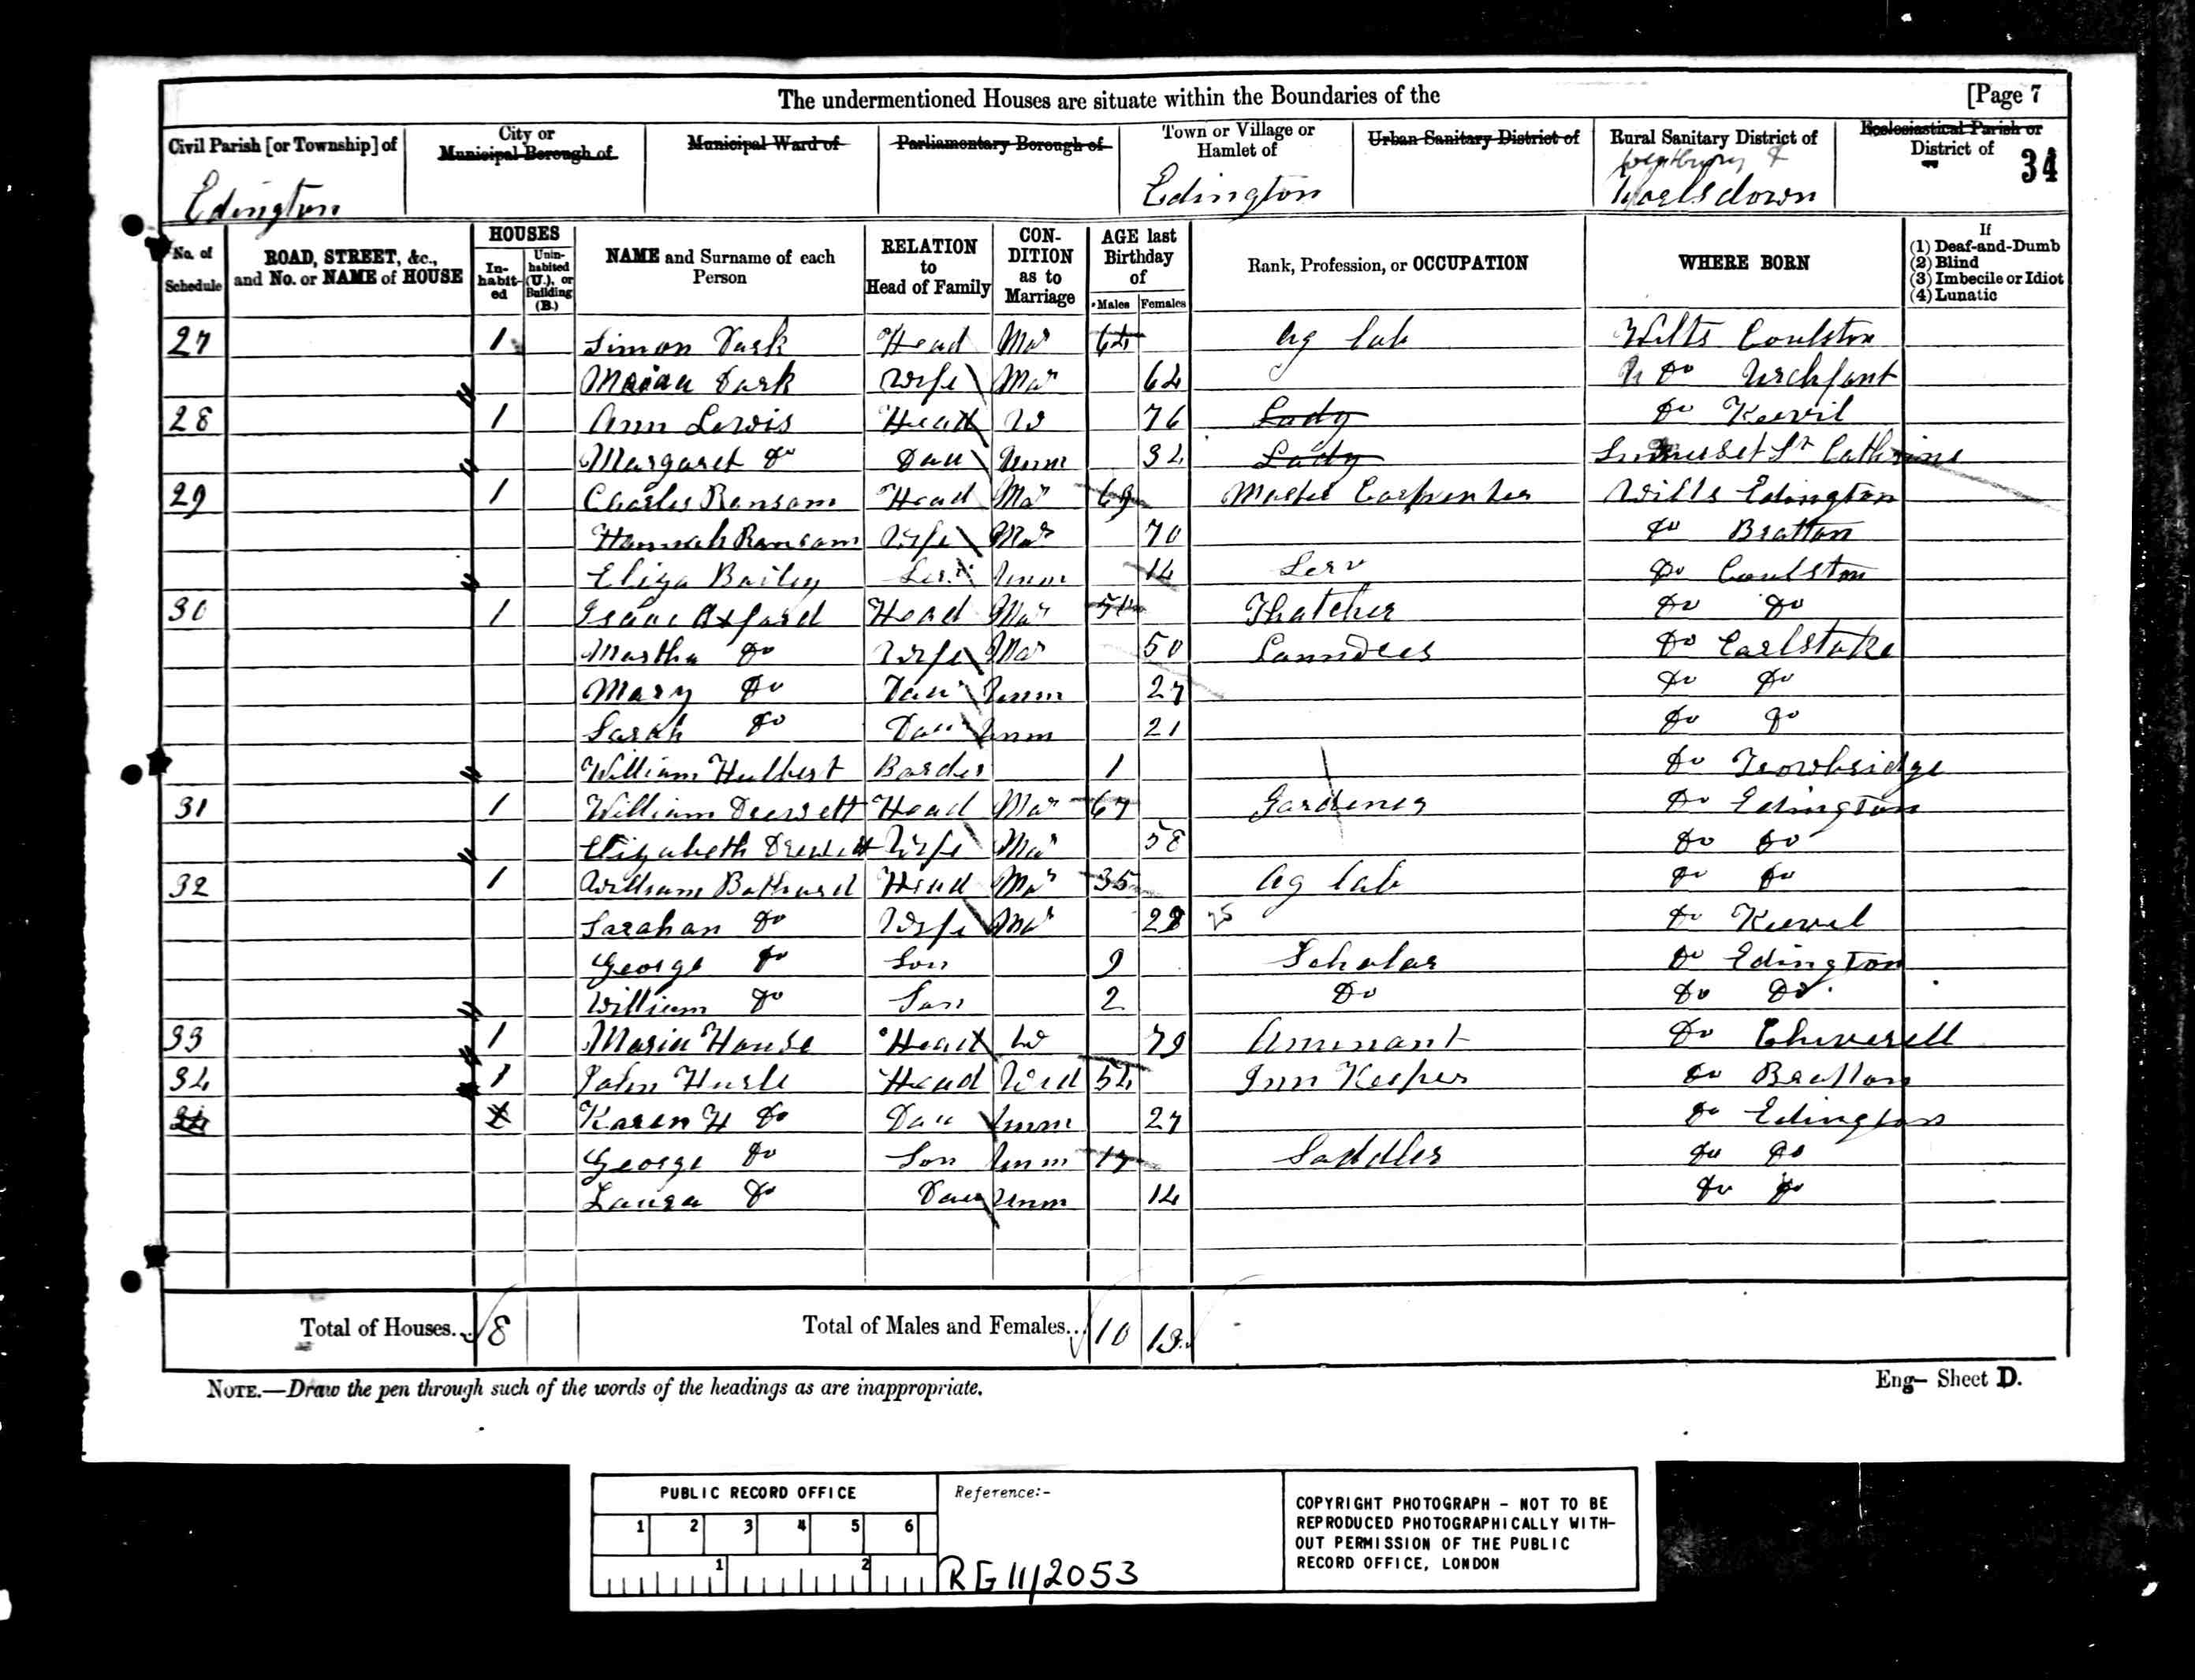 The undermentioned Houses are situate within the Boundaries of the [Page 7
Civil Parish [or Township] of City or Municipal Borough of Municipal Ward of Parliamentary Borough of Town or Village or Hamlet of Urban Sanitary District of Rural Sanitary District of Ecclesiastical Parish or District of
Edington Edington Westbury & Whorlsdown 34
No. of Schedule ROAD, STREET, &c., and No. or NAME of HOUSE HOUSES Inhabited Uninhabited (U.), or Building (B.) NAME and Surname of each Person RELATION to Head of Family CONDITION as to Marriage AGE last Birthday of Males Females Rank, Profession, or OCCUPATION WHERE BORN If (1) Deaf-and-Dumb (2) Blind (3) Imbecile or Idiot (4) Lunatic
27 1 Simon Dark Head Mar 64 Ag lab Wilts Coulston
Dark Wife Mar 64 Do Urchfont
28 1 Ann Lewis Head W 76 Lady Do Keevil
Margaret Do Dau Unm 34 Lady Somerset St Catherine
29 1 Charles Ransom Head Mar 69 Master Carpenter Wilts Edington
Hannah Ransom Wife Mar 70 Do Bratton
Eliza Bailey Serv Unm 14 Serv Do Coulston
30 1 Isaac Oxford Head Mar Thatcher Do Do
Martha Do Wife Mar 50 Laundress Do Earlstoke
Mary Do Dau Unm 27 Do Do
Sarah Do Dau Unm 21 Do Do
William Hulbert Border 1 Do Trowbridge
31 1 William Drewett Head Mar 67 Gardener Do Edington
Elizabeth Drewett Wife Mar 58 Do Do
32 1 William Bathurd Head Mar 35 Ag lab Do Do
Sarahan Do Wife Mar 28 Do Keevel
George Do Son 9 Scholar Do Edington
William Do Son 2 Do Do Do
33 1 Maria House Head W 79 Annunant Do Cheverell
34 1 John Hurle Head Wid 54 Inn Keeper Do Bratton
34 1 Karen H Do Dau Unm 27 Do Edington
George Do Son Unm 17 Saddler Do Do
Laura Do Dau Unm 14 Do Do
Total of Houses... 8 Total of Males and Females... 10 13
NOTE.—Draw the pen through such of the words of the headings as are inappropriate.
Eng— Sheet D.
PUBLIC RECORD OFFICE Reference:-
1 2 3 4 5 6
1 2
RG 11/2053
COPYRIGHT PHOTOGRAPH - NOT TO BE
REPRODUCED PHOTOGRAPHICALLY WITH-
OUT PERMISSION OF THE PUBLIC
RECORD OFFICE, LONDON